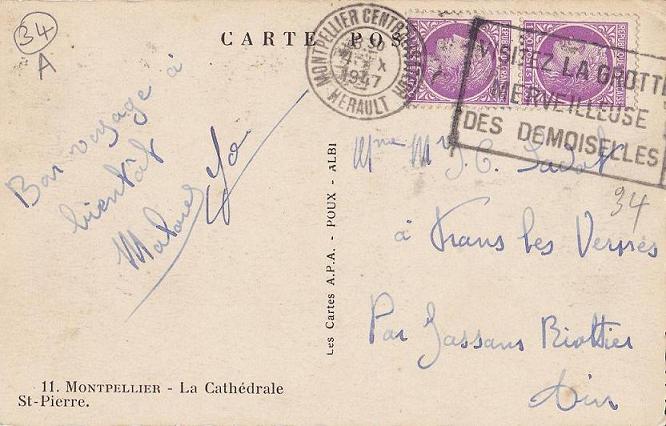 34
A
CARTE POS
MONTPELLIER CENTRAL
1947
HERAULT
VISITEZ LA GROTTE
MERVEILLEUSE
DES DEMOISELLES
Bon voyage à
bientôt
Les Cartes A.P.A. - POUX - ALBI
Mme Mr J. C.
34
à Frans les Verprés
Par Jassans Riottier
Ain
11. MONTPELLIER - La Cathédrale
St-Pierre.